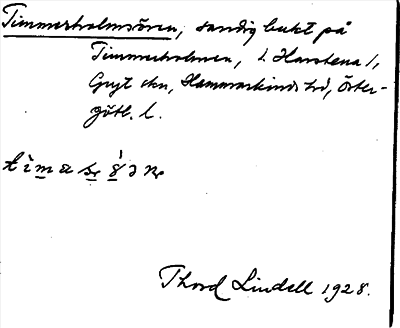 Timmerholmsören, sandig bukt på
Timmerholmen, i. Harstena l,
Gryt skn, Hammarkinds hd, Öster-
götl. l.
Thord Lindell 1928.